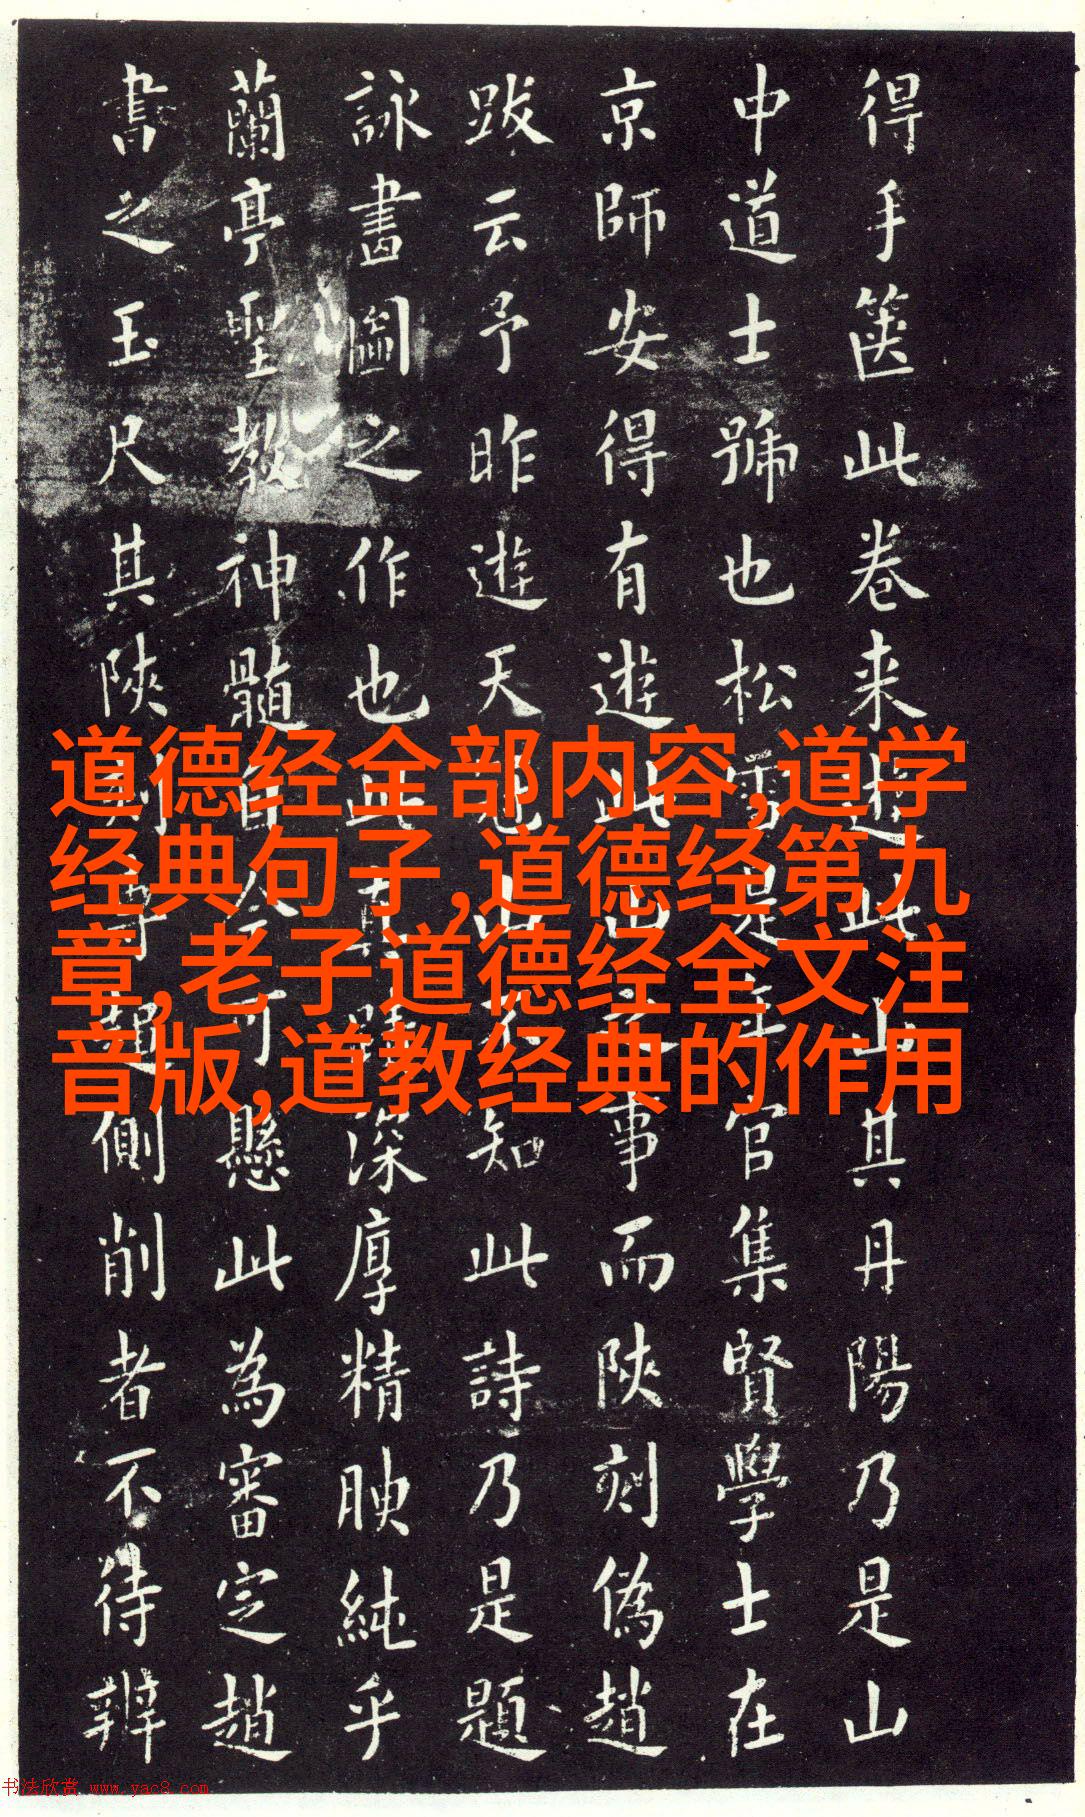 得手篋此卷来遊此山其丹陽乃是山
中道士號也松雪是年官集賢學士在
京師安得有遊此山之事而陝刻偽趙
跋云予昨遊天冠山不知此詩乃是題
詠畫圖之作也此真蹟深厚精腴純乎
蘭亭聖教神髓自今可懸此為審定趙
書之玉尺其陝刻專趨側削者不待辨
道德经全部内容,道学
经典句子,道德经第九
章,老子道德经全文注
音版,道教经典的作用
书法欣赏 www.yac8.com